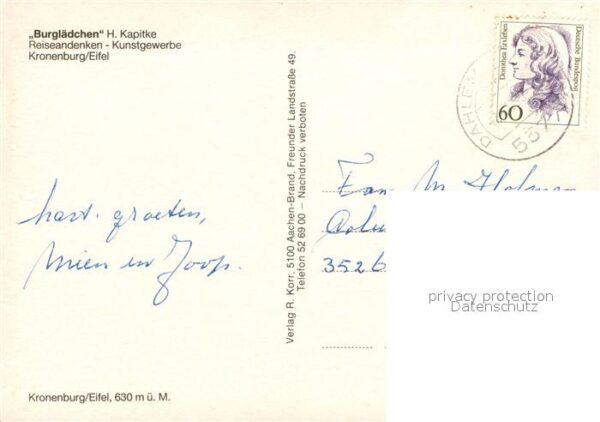 „Burglädchen“ H. Kapitke
Reiseandenken - Kunstgewerbe
Kronenburg/Eifel
hart. groeten,
Mien en Joop.
Kronenburg/Eifel, 630 m ü. M.
Verlag R. Korr, 5100 Aachen-Brand, Freunder Landstraße 49.
Telefon 52 69 00 – Nachdruck verboten
Dorothea Erxleben
Deutsche Bundespost
60
DAHLE
537
Fam M. Holm
3526
privacy protection
Datenschutz